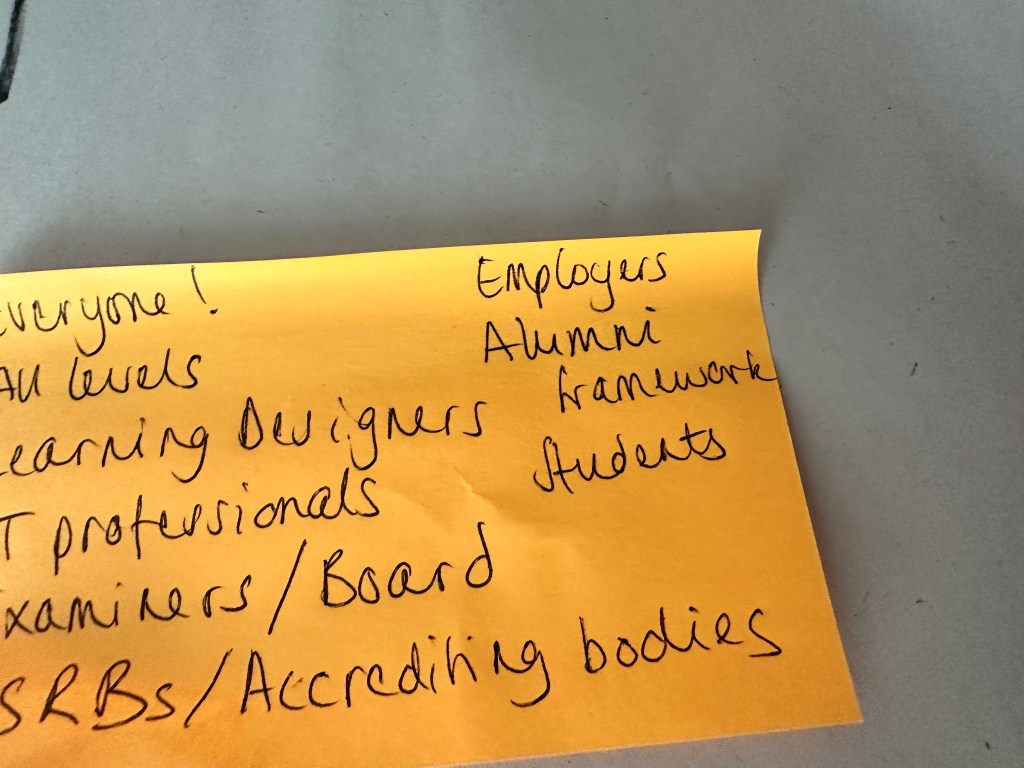 Everyone!
All levels
Learning Designers
T professionals
Examiners/Board
SRBs/Accrediting bodies
Employers
Alumni
framework
Students